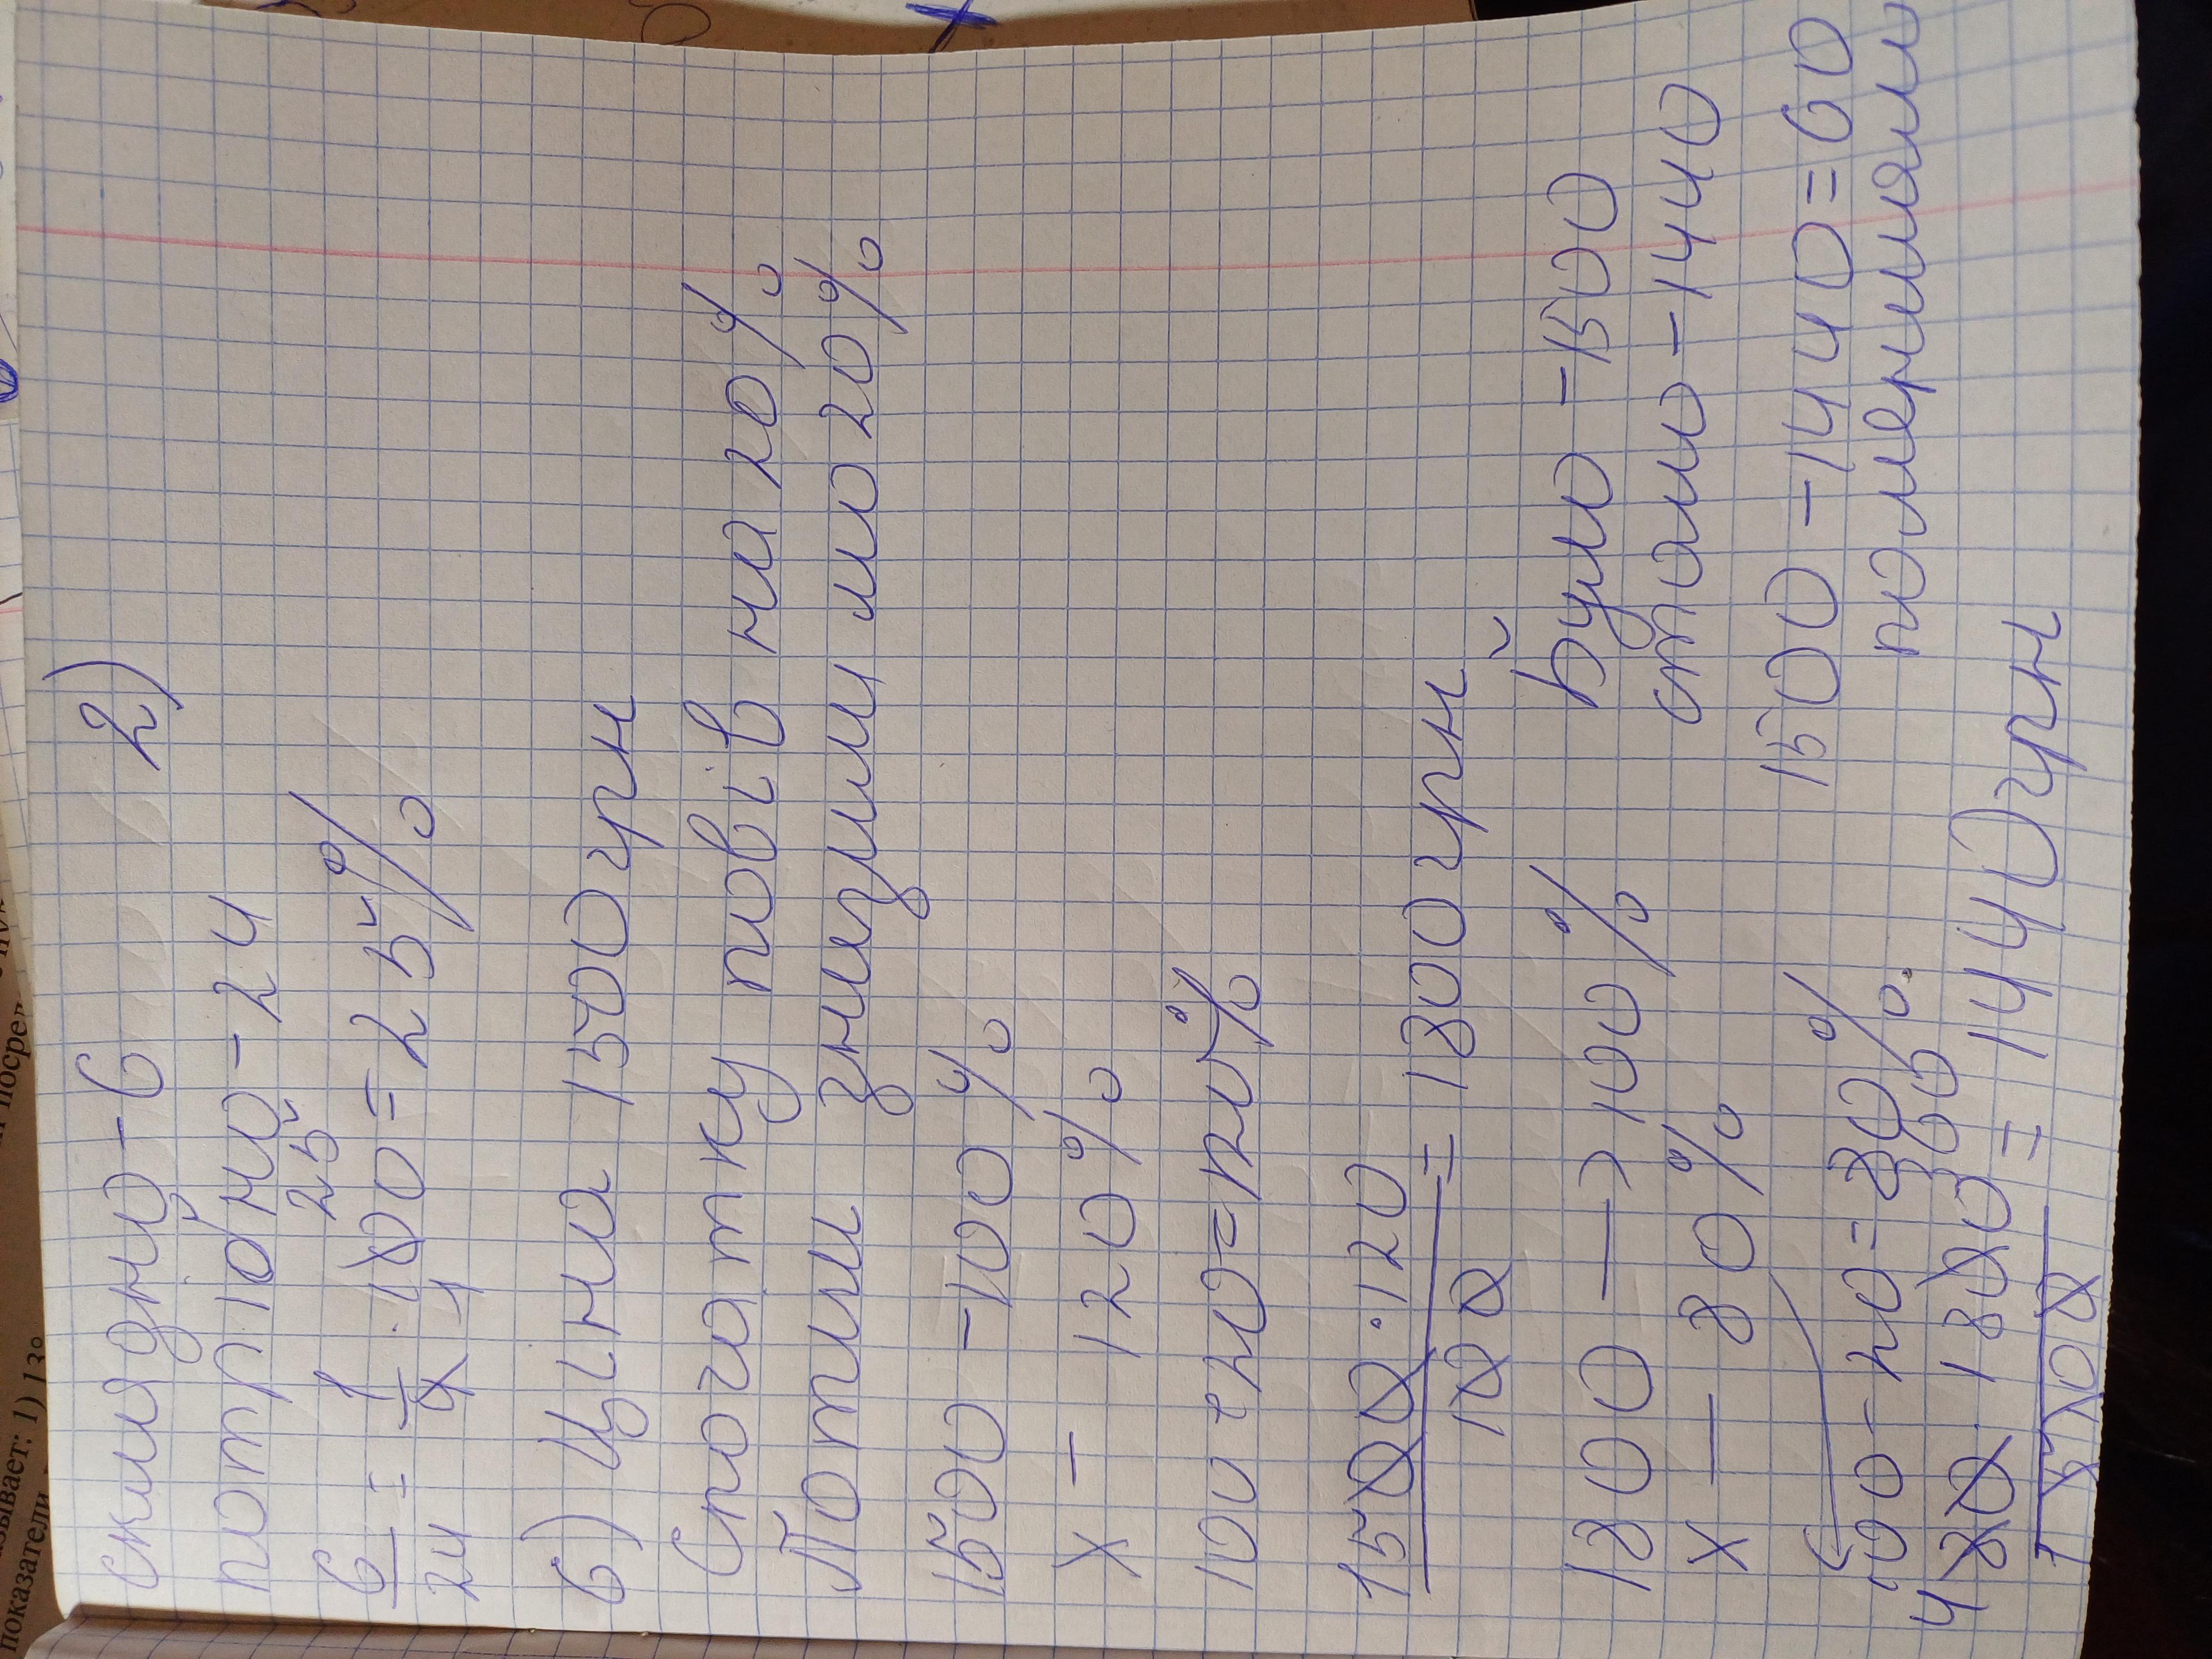 складно - 6 2)
потрібно - 24
6/24 = 1/4 · 100 25 / 1 = 25%
6) Ціна 1500 грн
Спочатку повів на 20%
Потім знизили на 20%
1500 - 100%
х - 120%
100 + 20 = 120%
1500 · 120 / 100 = 1800 грн
1800 — 100% Було - 1500
х — 80% стало - 1440
100 - 20 = 80%. 1500 - 1440 = 60
4 80 · 1800 360 / 100 = 1440 грн
показатели
1) 13°